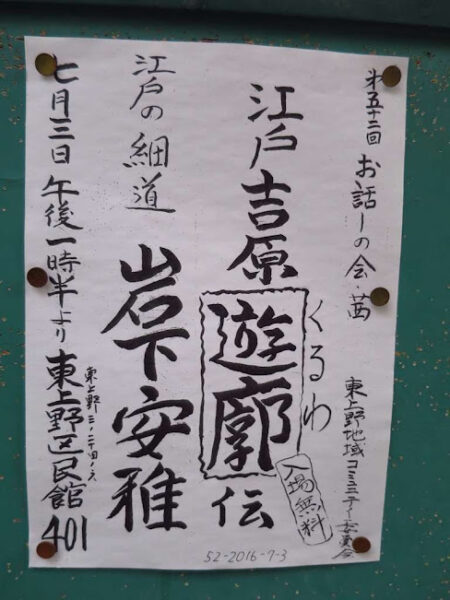 第五十二回 お話しの会・茜
東上野地域コミュニティー委員会
江戸吉原遊廓伝
くるわ
入場無料
江戸の細道
岩下安雅
七月三日 午後一時半より 東上野区民館401
52-2016-7-3